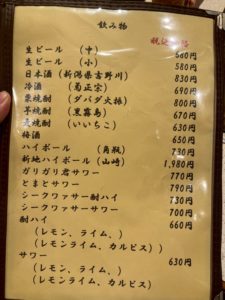 飲み物
税込
生ビール (中) 680円
生ビール (小) 580円
日本酒 (新潟県吉野川) 830円
冷酒 (菊正宗) 690円
栗焼酎 (ダバダ火振) 800円
芋焼酎 (黒霧島) 670円
麦焼酎 (いいちこ) 630円
梅酒 650円
ハイボール (角瓶) 730円
新地ハイボール (山崎) 1,980円
ガリガリ君サワー 770円
とまとサワー 790円
シークワァサー酎ハイ 730円
シークワァサーサワー 700円
酎ハイ 660円
(レモン、ライム、)
(レモンライム、カルピス)
サワー 630円
(レモン、ライム、)
(レモンライム、カルピス)